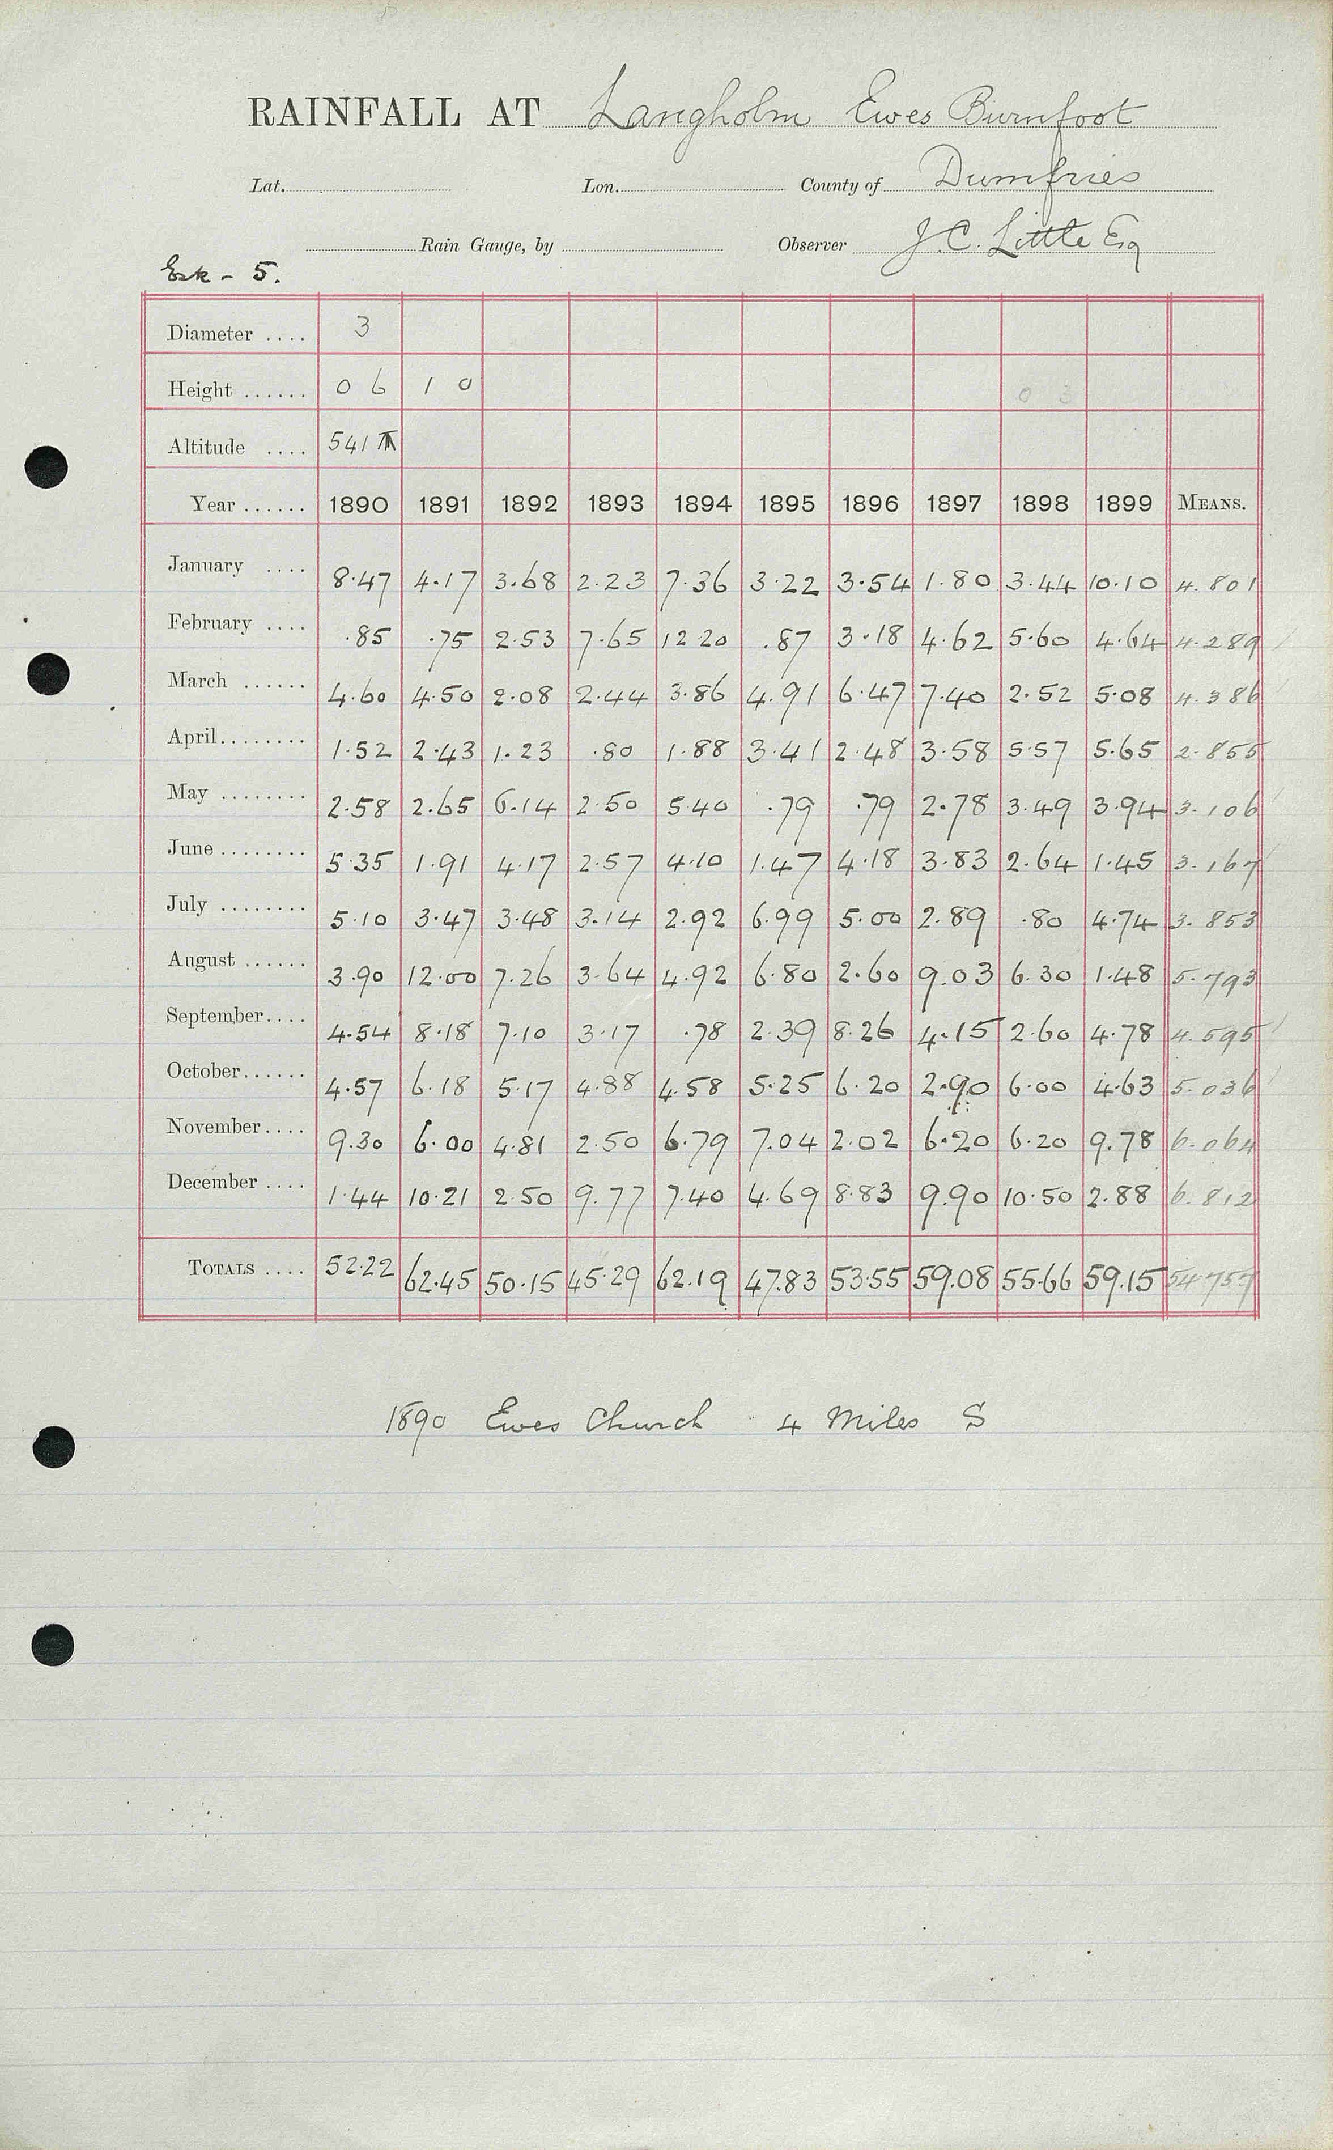 RAINFALL AT Langholm Ewes Burnfoot
Lat. Lon. County of Dumfries
Rain Gauge, by Observer J.C. Little Esq
Esk - 5.
Diameter .... 3
Height ...... 0 6 1 0 0 3
Altitude .... 541
Year ...... 1890 1891 1892 1893 1894 1895 1896 1897 1898 1899 MEANS.
January .... 8.47 4.17 3.68 2.23 7.36 3.22 3.54 1.80 3.44 10.10 4.801
February .... .85 .75 2.53 7.65 12.20 .87 3.18 4.62 5.60 4.64 4.289
March ...... 4.60 4.50 2.08 2.44 3.86 4.91 6.47 7.40 2.52 5.08 4.386
April........ 1.52 2.43 1.23 .80 1.88 3.41 2.48 3.58 5.57 5.65 2.855
May ........ 2.58 2.65 6.14 2.50 5.40 .79 .79 2.78 3.49 3.94 3.106
June ........ 5.35 1.91 4.17 2.57 4.10 1.47 4.18 3.83 2.64 1.45 3.167
July ........ 5.10 3.47 3.48 3.14 2.92 6.99 5.00 2.89 .80 4.74 3.853
August ...... 3.90 12.00 7.26 3.64 4.92 6.80 2.60 9.03 6.30 1.48 5.793
September.... 4.54 8.18 7.10 3.17 .78 2.39 8.26 4.15 2.60 4.78 4.595
October...... 4.57 6.18 5.17 4.88 4.58 5.25 6.20 2.90 6.00 4.63 5.036
November.... 9.30 6.00 4.81 2.50 6.79 7.04 2.02 6.20 6.20 9.78 6.064
December .... 1.44 10.21 2.50 9.77 7.40 4.69 8.83 9.90 10.50 2.88 6.812
TOTALS .... 52.22 62.45 50.15 45.29 62.19 47.83 53.55 59.08 55.66 59.15 54.757
1890 Ewes Church 4 Miles S